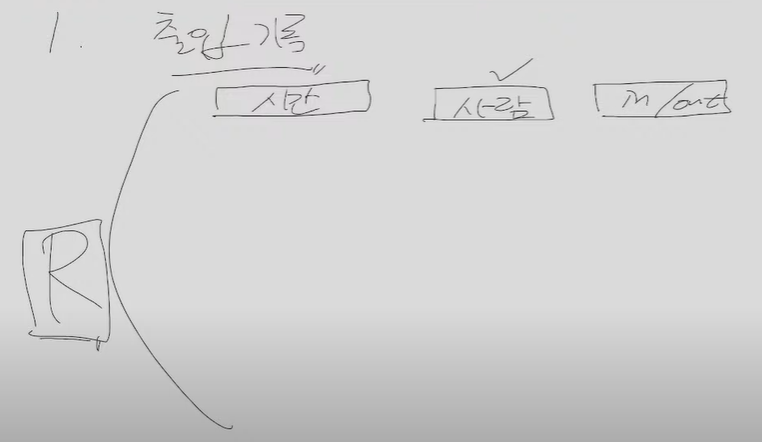 1. 출입 기록
시간 사람 in/out
R